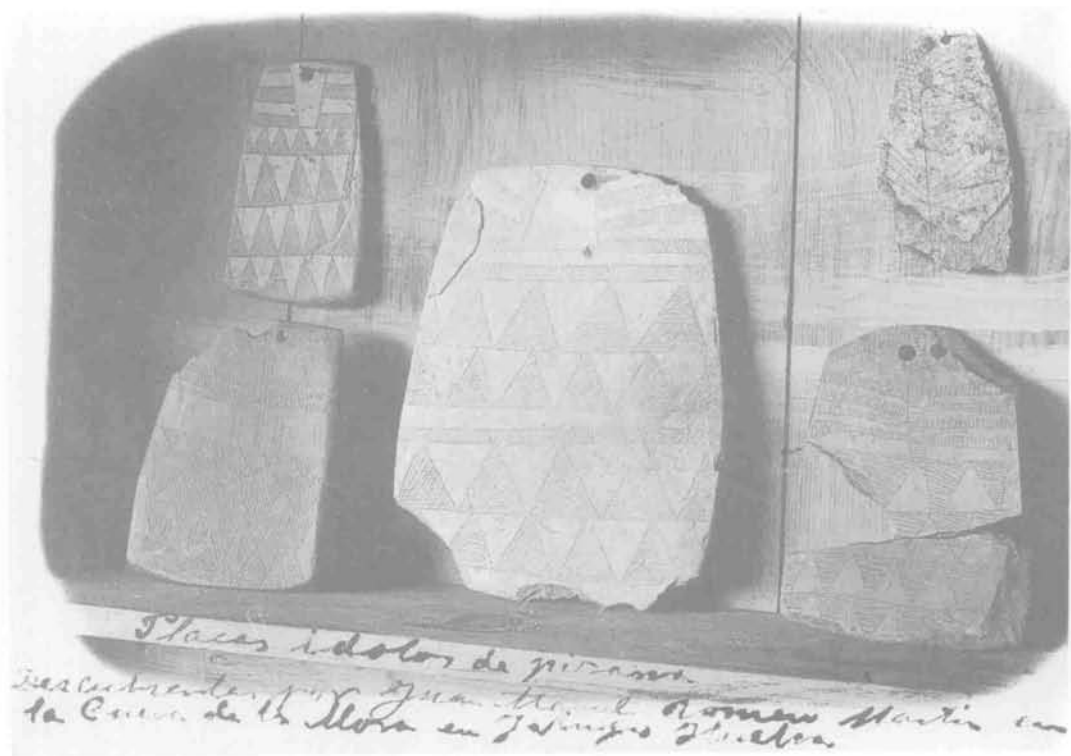 Placas idolos de pizarra
Descubiertas por Juan Manuel Romero Martin en
la Cueva de la Mora en Jabugo Huelva